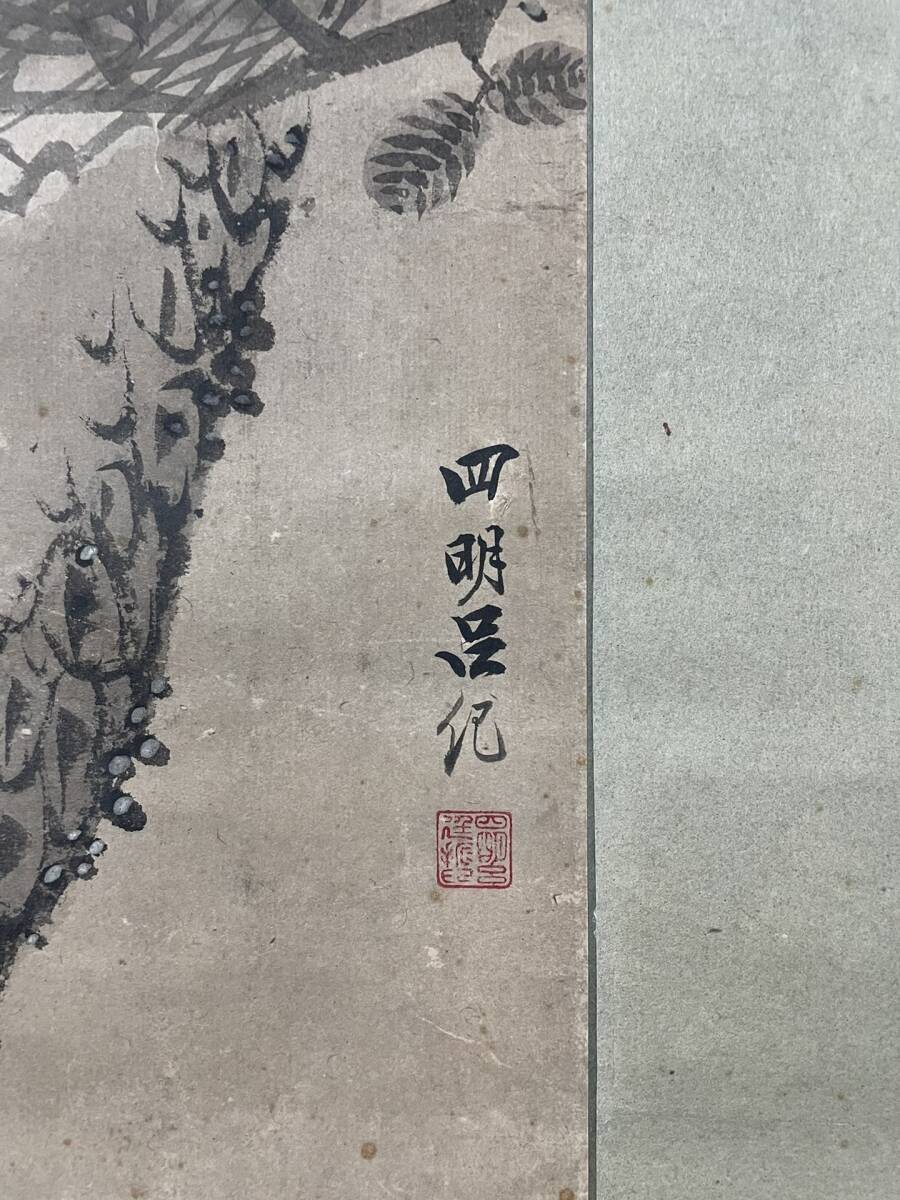 四明呂紀